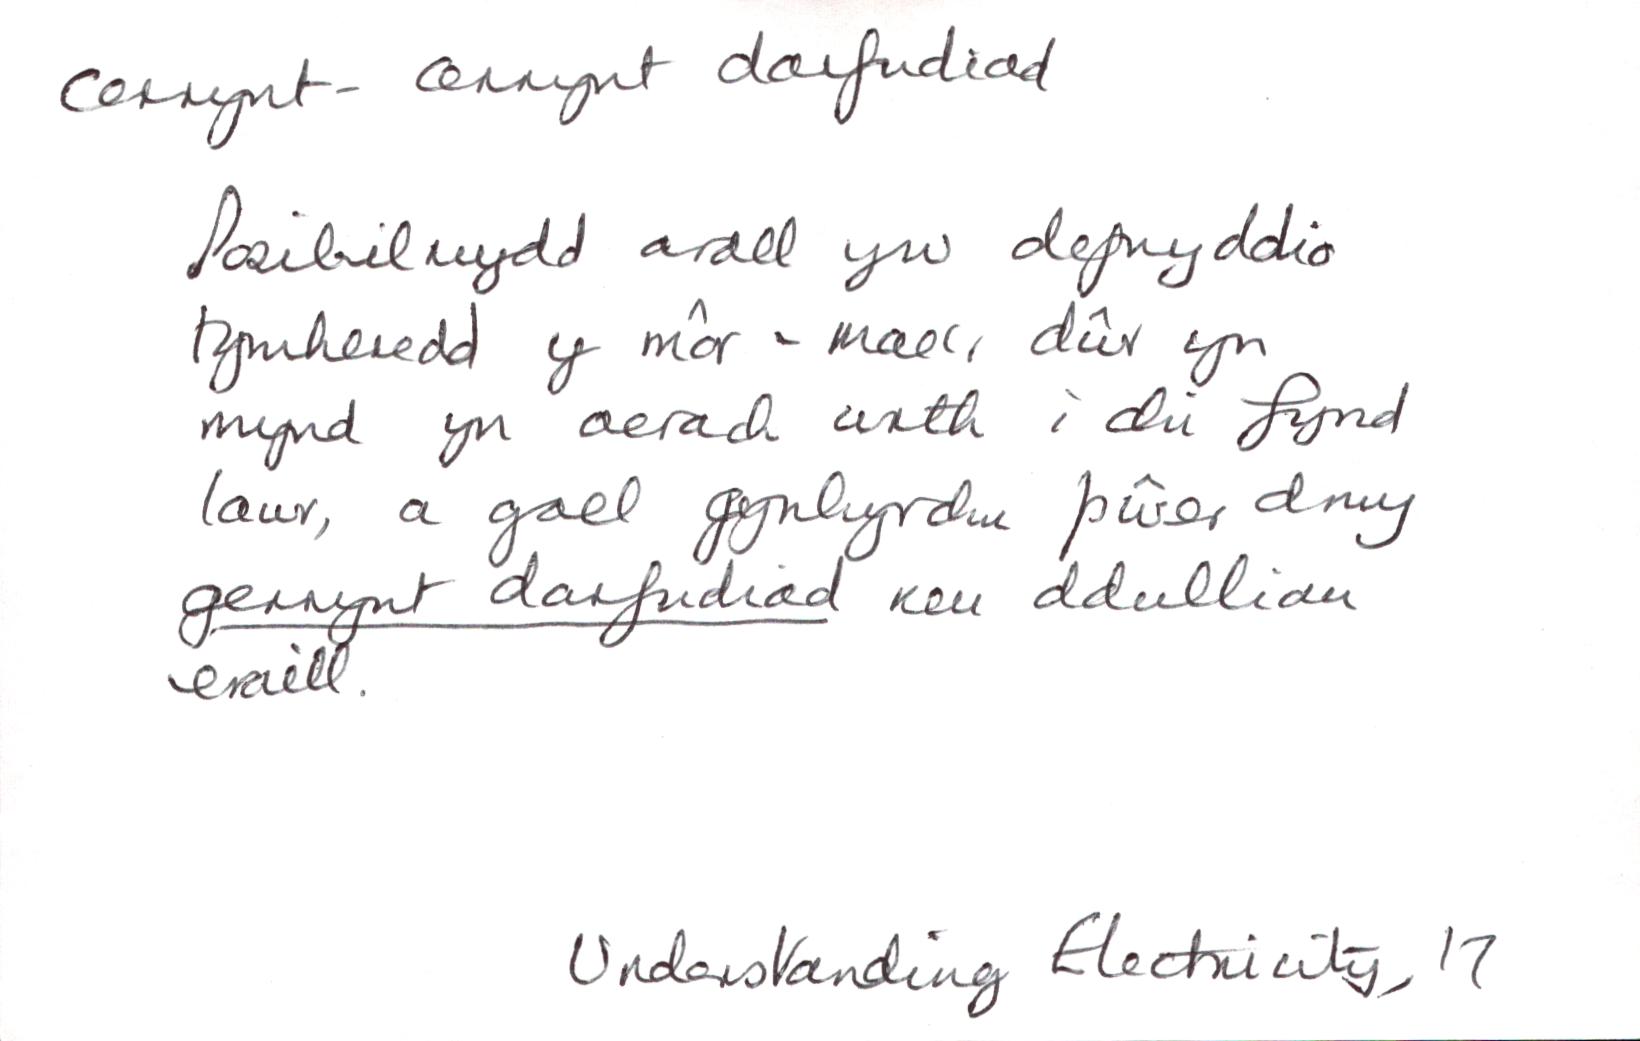 Cerrynt - cerrynt darfudiad
Posibilrwydd arall yw defnyddio
tymheredd y môr - mae'r dŵr yn
mynd yn oerach wrth i chi fynd
lawr, a gael gynhyrchu pŵer drwy
gerrynt darfudiad neu ddulliau
eraill.
Understanding Electricity, 17